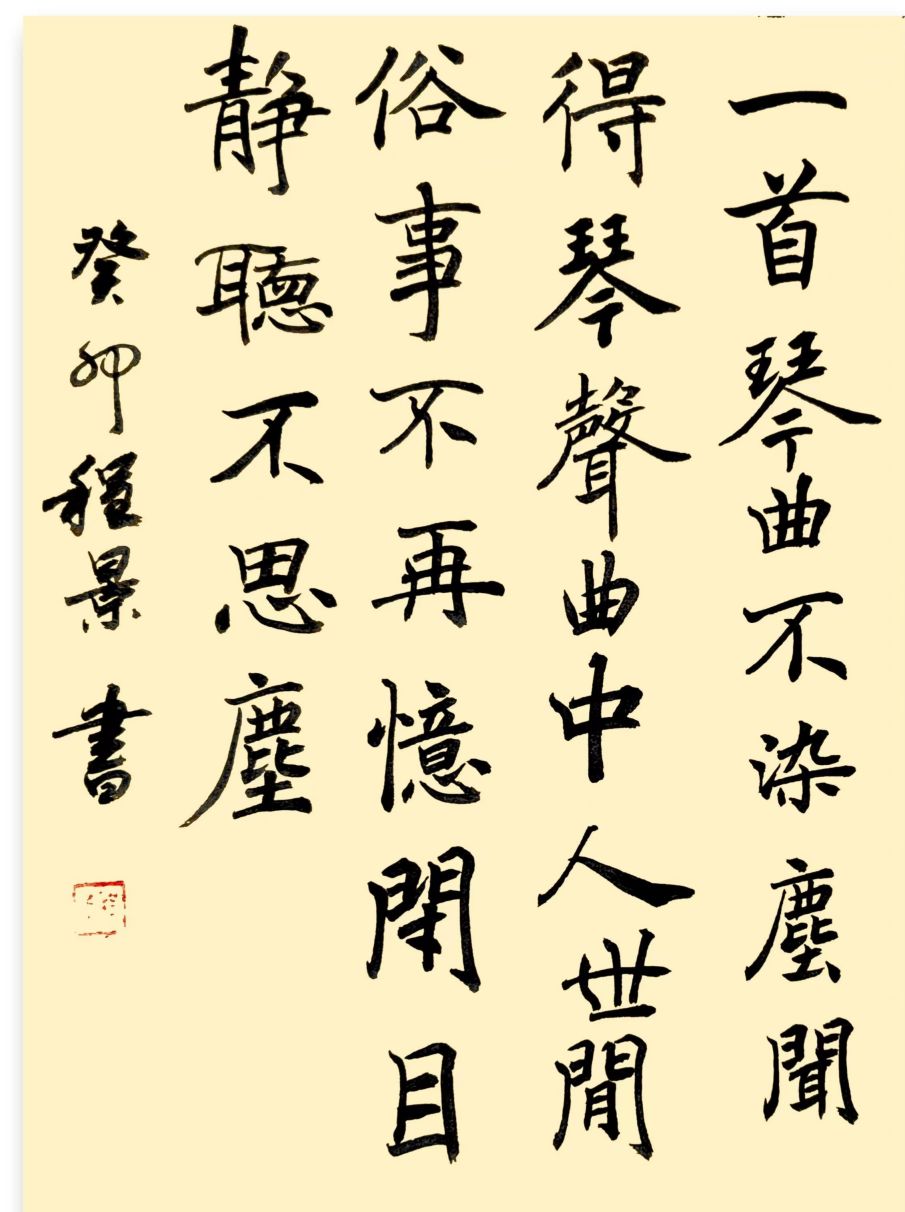 一首琴曲不染塵聞
得琴聲曲中人世間
俗事不再憶閉目
静聽不思塵
癸卯程景書